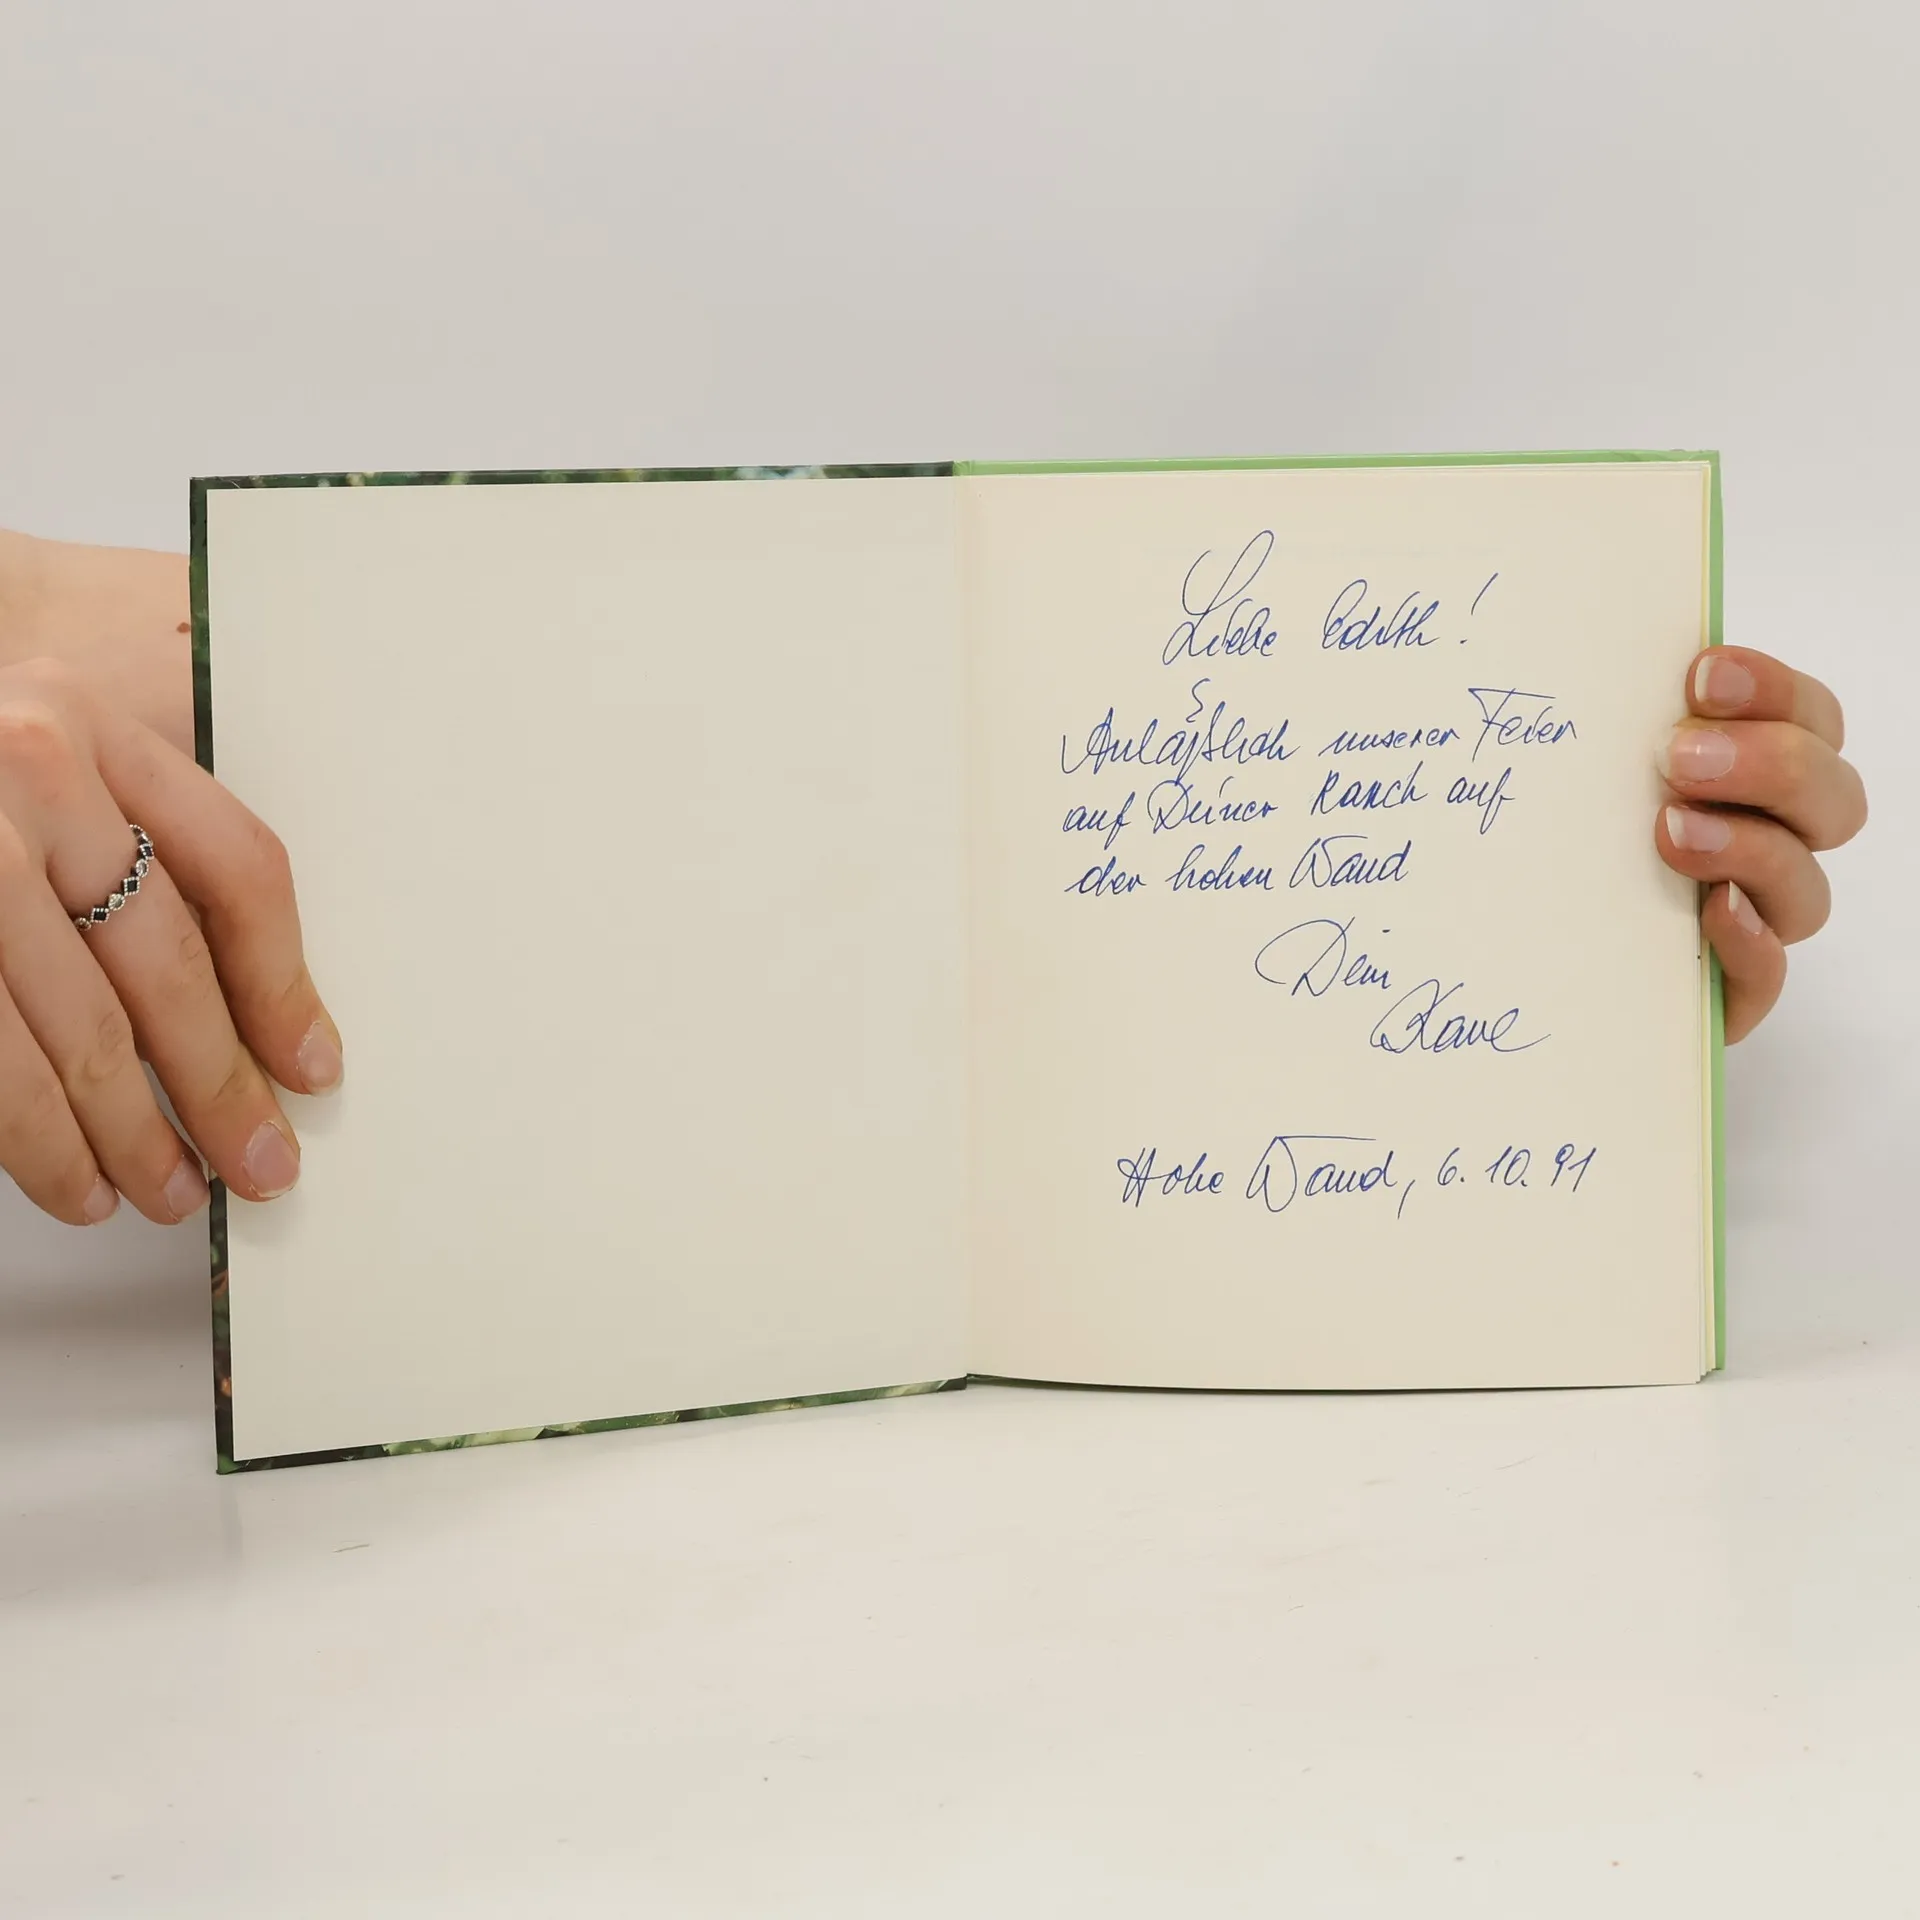 Liebe Edith!
Anläßlich unserer Feier
auf Deiner Ranch auf
der hohen Wand
Dein
Hohe Wand, 6.10.91